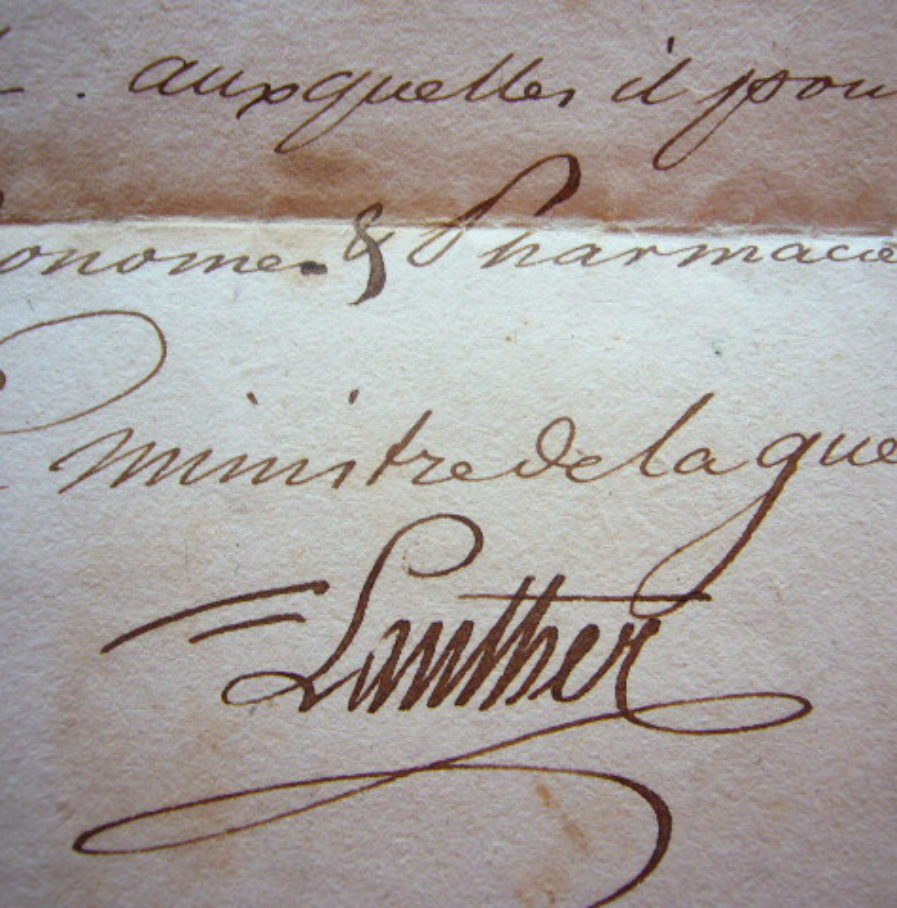 . auxquelles il pou
onome & Pharmacie
ministre de la gue
Lauther